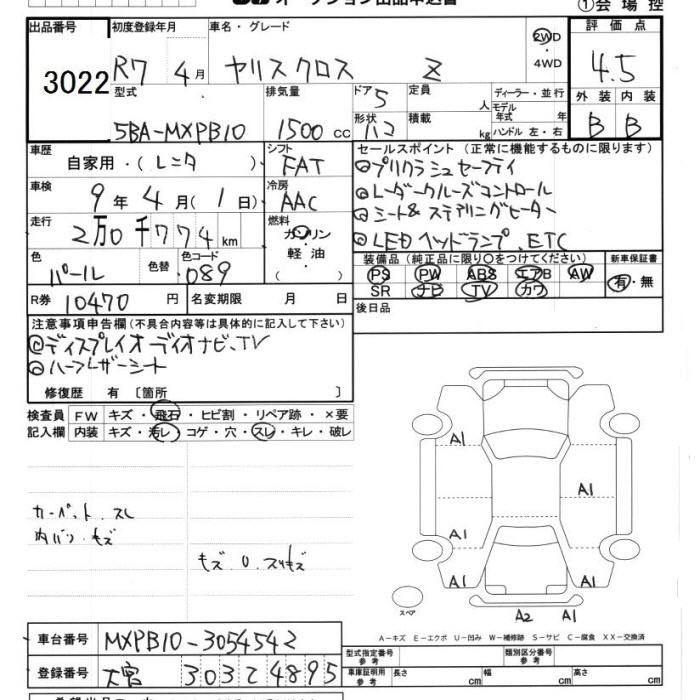 オークション出品申込書
①会場控
出品番号
3022
初度登録年月
R7 4月
車名・グレード
ヤリスクロス Z
2WD
・4WD
評価点
4.5
外装 内装
B B
型式
5BA-MXPB10
排気量
1500cc
ドア 5
形状 ハコ
定員 人
積載 kg
ディーラー・並行
モデル年式 年
ハンドル 左・右
車歴
自家用・(レンタ)
シフト
FAT
車検
9年4月(1日)
冷房
AAC
走行
2万0千774km
燃料
ガソリン
・
軽油
色
パール
色替
色コード
089
R券 10470円
名変期限 月 日
セールスポイント(正常に機能するものに限ります)
プリクラッシュセーフティ
レーダークルーズコントロール
シート&ステアリングヒーター
LEDヘッドランプ、ETC
装備品(純正品に限り○をつけてください)
PS PW ABS エアB AW
SR ナビ TV カワ
新車保証書
有・無
後日品
注意事項申告欄(不具合内容等は具体的に記入して下さい)
ディスプレイオーディオナビ、TV
ハーフレザーシート
修復歴 有 〔箇所 〕
検査員 FW キズ・飛石・ヒビ割・リペア跡・×要
記入欄 内装 キズ・汚レ・コゲ・穴・スレ・キレ・破レ
カーペット、スレ
内バン、キズ
キズ、0、スリキズ
A1
A1
A1
A1
A1
A2 A1
スペア
A−キズ E−エクボ U−凹み W−補修跡 S−サビ C−腐食 XX−交換済
車台番号 MXPB10-3054542
登録番号 大宮 303 ア 4895
型式指定番号 参考
類別区分番号 参考
車庫証明用 参考 長さ cm 幅 cm 高さ cm